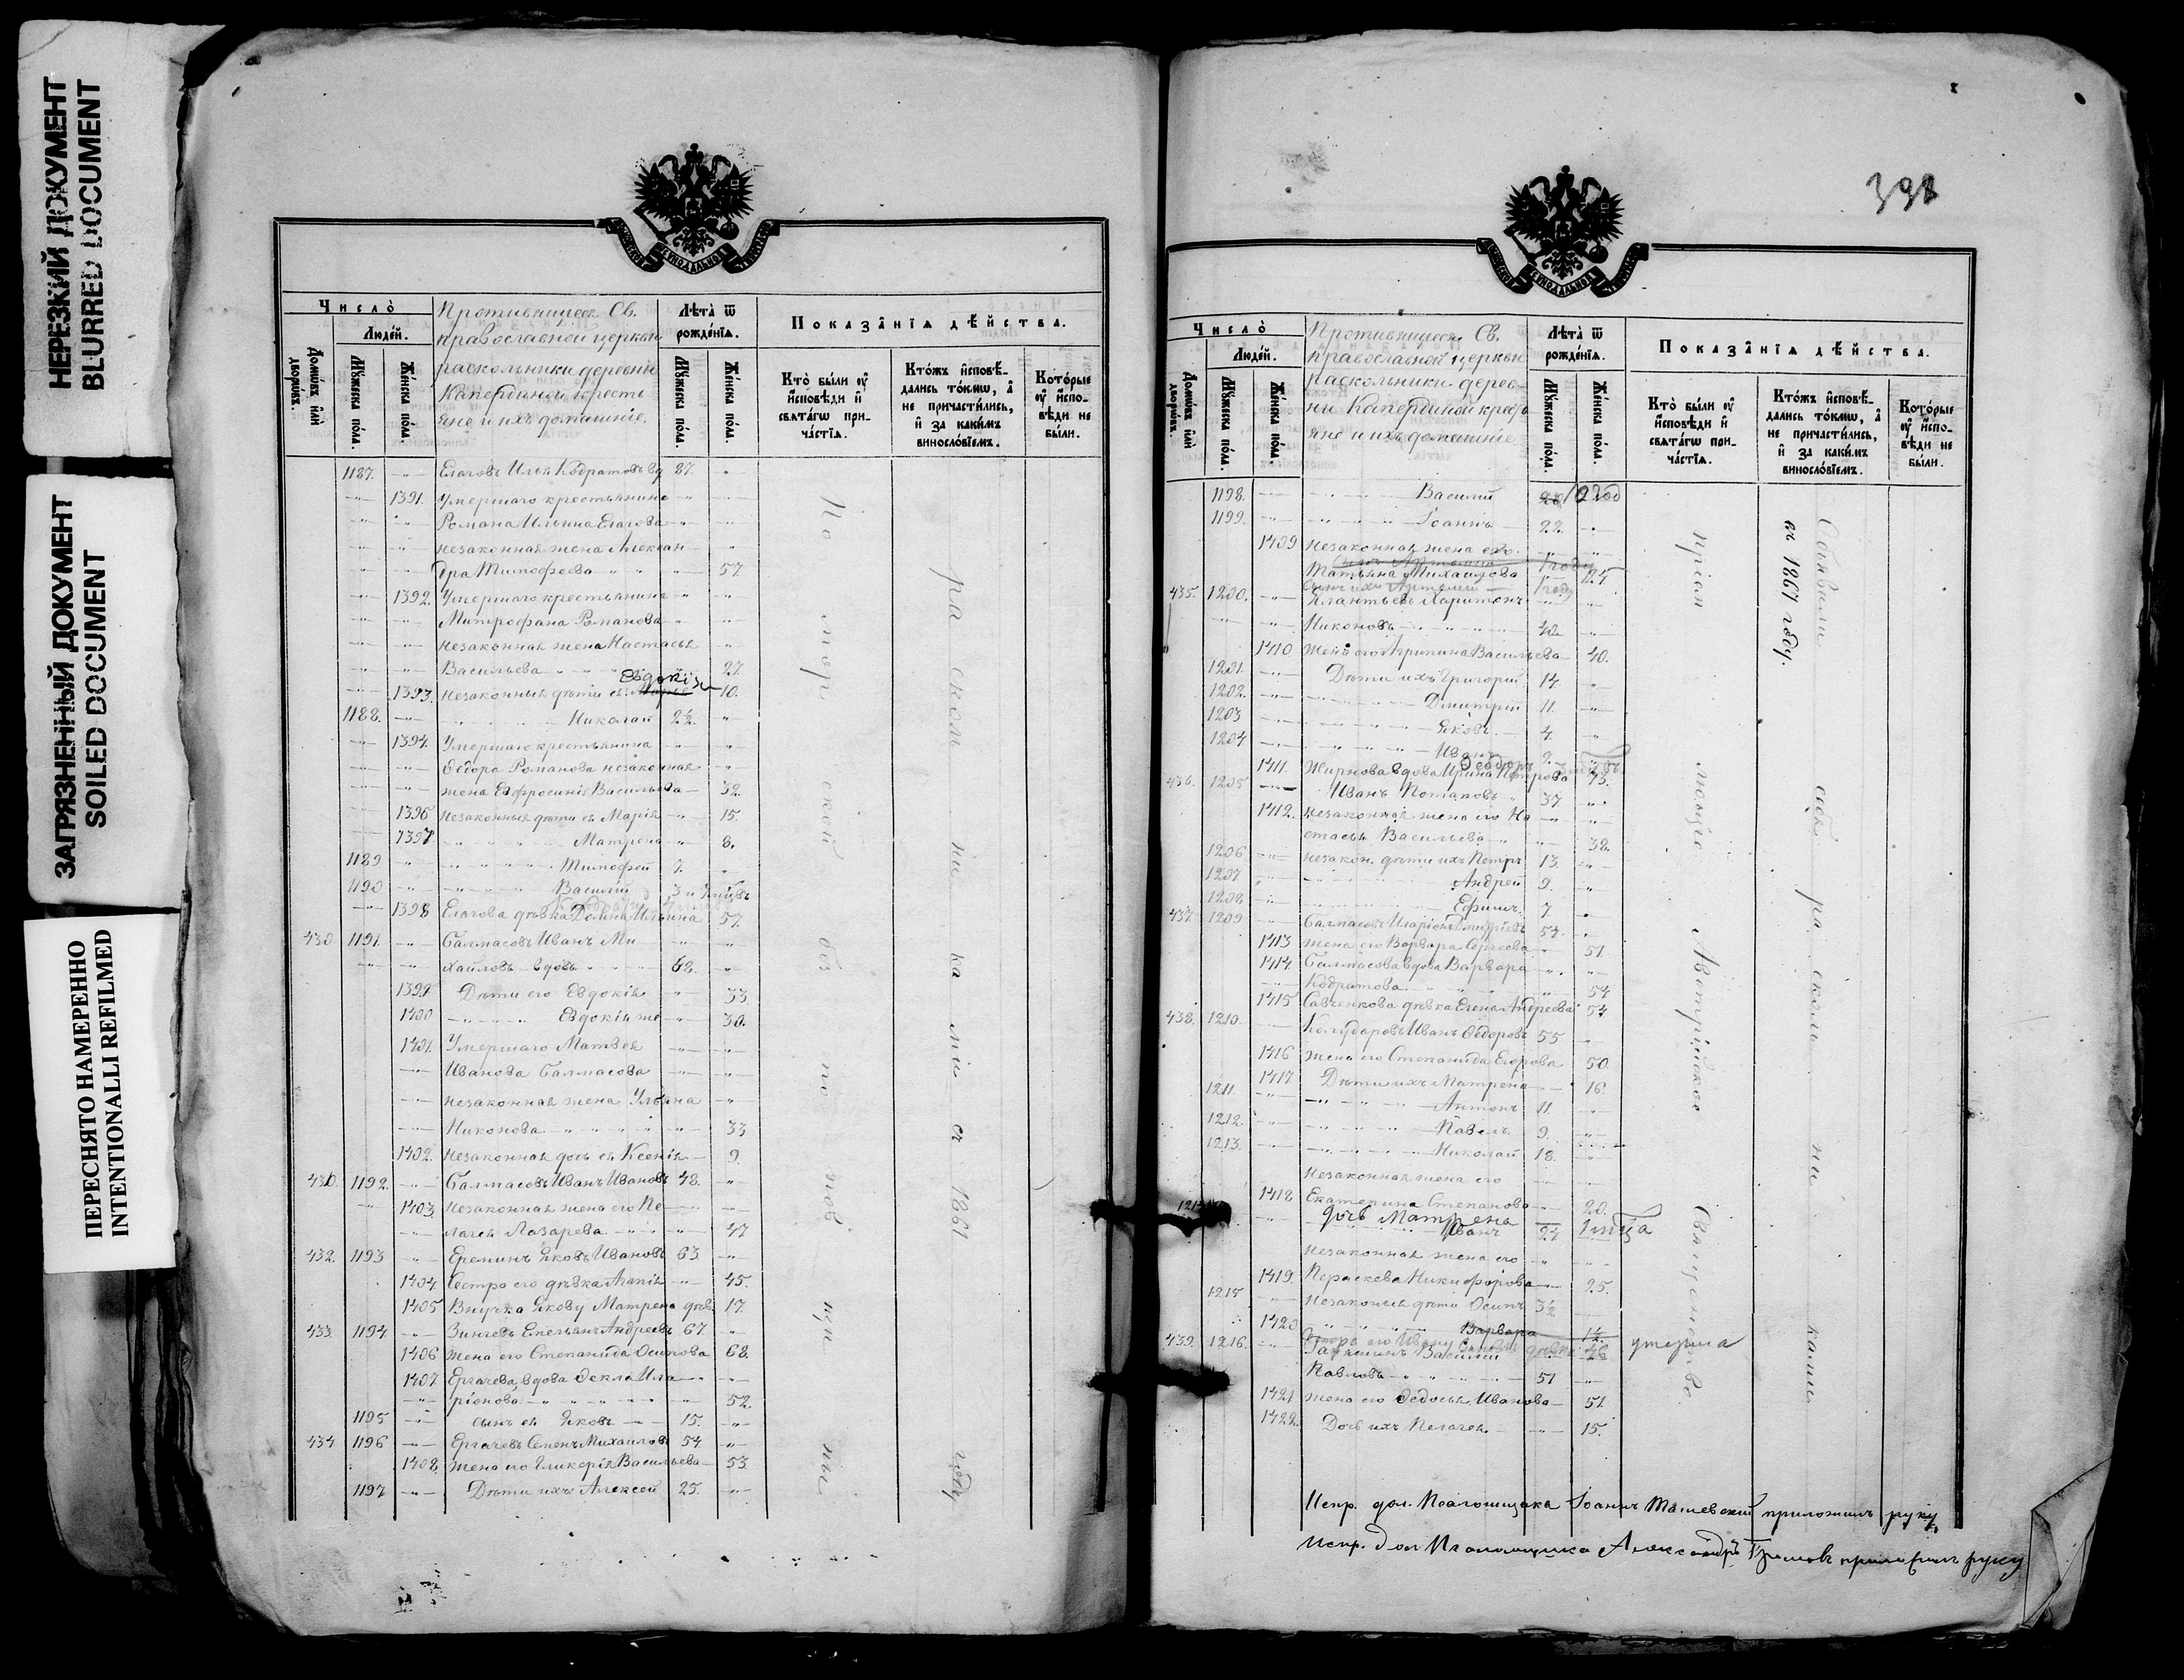 НЕРЕЗКИЙ ДОКУМЕНТ
BLURRED DOCUMENT
ЗАГРЯЗНЕННЫЙ ДОКУМЕНТ
SOILED DOCUMENT
ПЕРЕСНЯТО НАМЕРЕННО
INTENTIONALLI REFILMED
Число̀
Людéй.
Домѡ́въ и҆лѝ дворѡ́въ.
Мꙋ́жеска по́ла.
Же́нска по́ла.
Противящіеся Св.
православной церкви
раскольники деревни
Капердиной кресть
яне и ихъ домашніе.
Лѣта̀ ѿ рожде́нїѧ.
Мꙋ́жеска по́ла.
Же́нска по́ла.
Показа̑нїѧ дѣ́йства.
Кто̀ бы́ли ᲂу҆ и҆сповѣ́ди и҆ свѧта́гѡ прича́стїѧ.
Кто́жъ и҆сповѣ́дались то́кмѡ, а҆ не причасти́лись, и҆ за каки́мъ винослѡ́вїемъ.
Кото́рые ᲂу҆ и҆сповѣ́ди не бы́ли.
1187. Елаговъ Илья Кодратовъ вд 87.
1391. Умершаго крестьянина
Романа Ильина Елагова
незаконная жена Алексан
дра Тимофеева 57.
1392. Умершаго крестьянина
Митрофана Романова
незаконная жена Настасья
Васильева 27.
1393. незаконныя дѣти ея: Марья Евдокія 10.
1188. Николай 2½
1394. Умершаго крестьянина
Ѳедора Романова незаконная
жена Евфросинія Васильева 32.
1396 незаконныя дѣти ея Марія 15.
1397 Матрена 8.
1189 Тимофей 7.
1190 Василій 3
1398 Елагова дѣвка Домна Ильина 57.
430. 1191. Салмасовъ Иванъ Ми
хайловъ вдовъ 68.
1399 Дѣти его Евдокія 33
1400 Евдокія же 30.
1401. Умершаго Матвея
Иванова Салмасова
незаконная жена Ульяна
Никонова 33
1402. незаконная дочь ея Ксенія 9.
430. 1192. Салмасовъ Иванъ Ивановъ 48.
1403. незаконная жена его Пе
лагея Лазарева 47
432. 1193 Ереминъ Яковъ Ивановъ 63
1404. Сестра его дѣвка Агапія 45.
1405 Внучка Якову Матрена дѣв. 17.
433. 1194. Зинчевъ Емельянъ Андреевъ 67
1406 жена его Степанида Осипова 68.
1407 Ергачева вдова Ѳекла Ила
ріонова 52.
1195 сынъ ея Яковъ 15.
434 1196 Ергачевъ Семенъ Михайловъ 54
1408. жена его Гликерія Васильева 53.
1197 Дѣти ихъ Алексей 25.
По мор ской без по пов щи ны
ра сколь ни ка ми съ 1861 году
398
Число̀
Людéй.
Домѡ́въ и҆лѝ дворѡ́въ.
Мꙋ́жеска по́ла.
Же́нска по́ла.
Противящіеся Св.
православной церкви
раскольники дерев
ни Капердиной кресть
яне и ихъ домашніе
Лѣта̀ ѿ рожде́нїѧ.
Мꙋ́жеска по́ла.
Же́нска по́ла.
Показа̑нїѧ дѣ́йства.
Кто̀ бы́ли ᲂу҆ и҆сповѣ́ди и҆ свѧта́гѡ прича́стїѧ.
Кто́жъ и҆сповѣ́дались то́кмѡ, а҆ не причасти́лись, и҆ за каки́мъ винослѡ́вїемъ.
Кото́рые ᲂу҆ и҆сповѣ́ди не бы́ли.
1198. Василій
1199. Іоаннъ 22.
1409 Незаконная жена его
Татьяна Михайлова 24.
сынъ ихъ Артемій 1 году
435. 1200. Харитонъ
Никоновъ 42.
1410 жена его Агрипина Васильева 40.
1201. Дѣти ихъ Григорій 14.
1202. Дмитрій 11.
1203 Яковъ 4.
1204 Иванъ
Ѳеодоръ
1411. Жирнова вдова Ирина Петрова 73.
436. 1205 Иванъ Потаповъ 37.
1412. Незаконная жена его На
стасья Васильева 38.
1206 незакон. дѣти ихъ Петръ 13.
1207 Андрей 9.
1208 Ефимъ 7
437. 1209 Салмасовъ Иларіонъ Дмитріевъ 54.
1413 жена его Варвара Сергеева 51
1414. Салмасова вдова Варвара
Кодратова 54
1415 Савченкова дѣвка Елена Андреева 54
438. 1210. Иванъ Ѳедоровъ 55
1416 жена его Степанида Егорова 50.
1417 Дѣти ихъ Матрена 16.
1211. Антонъ 11.
1212. Павелъ 9.
1213. Николай 18.
незаконная жена его
1418 Екатерина Степанова 20.
дочь Матрена 1 мѣца
1214 Иванъ 24
незаконная жена его
1419. Параскева Никифорова 25.
1215 Незаконыя дѣти Осипъ 3½
1420 Варвара 1½. умерла
439. 1216. Василій
Павловъ 51
1421 жена его Ѳедосья Иванова 51
1422. Дочь ихъ Пелагея 15.
пріем лющіе Австрійское Священство
Объявили себя ра сколь ни ками
въ 1867 году.
Испр. дол. Псаломщика Іоаннъ приложилъ руку
Испр. дол Псаломщика Александръ приложилъ руку